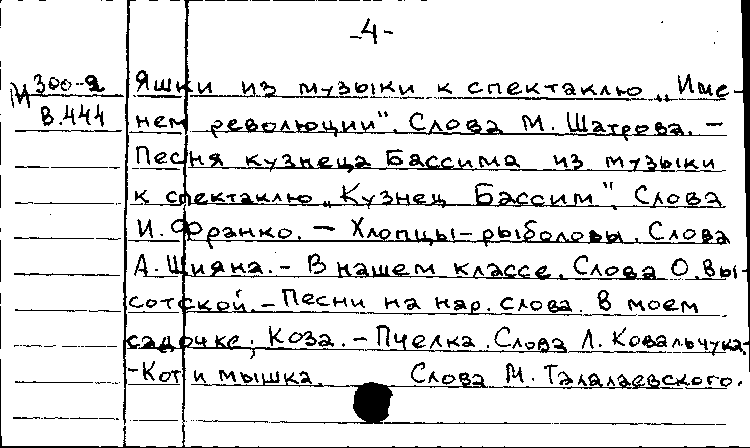 -4-
М 300-2 Яшки из музыки к спектаклю „Име-
В.444 нем революции". Слова М. Шатрова. –
Песня кузнеца Бассима из музыки
к спектаклю „Кузнец Бассим". Слова
И. Франко. – Хлопцы-рыболовы. Слова
А. Шияна. – В нашем классе. Слова О. Вы-
сотской. – Песни на нар. слова. В моем
садочке; Коза. – Пчелка. Слова Л. Ковальчука.
-Кот и мышка. Слова М. Талалаевского.